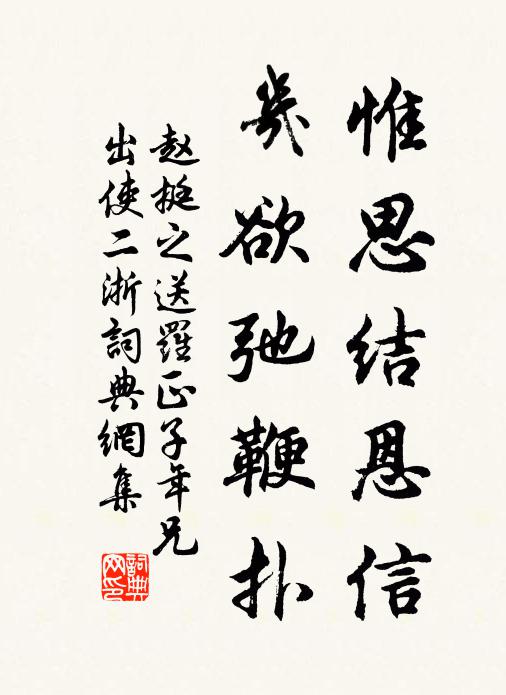 惟思结恩信
几欲弛鞭扑
赵挺之送罗正子年兄
出使二浙词典网集
詞典網印